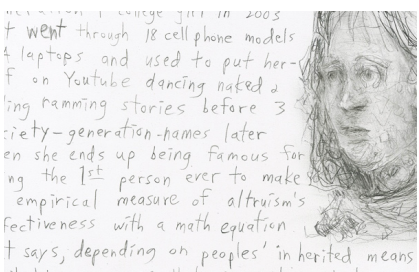 college girl in 2003
t went through 18 cell phone models
t laptops and used to put her-
f on Youtube dancing naked 2
ing ramming stories before 3
ciety-generation-names later
en she ends up being famous for
ng the 1st person ever to make
empirical measure of altruism's
fectiveness with a math equation.
t says, depending on peoples' inherited means